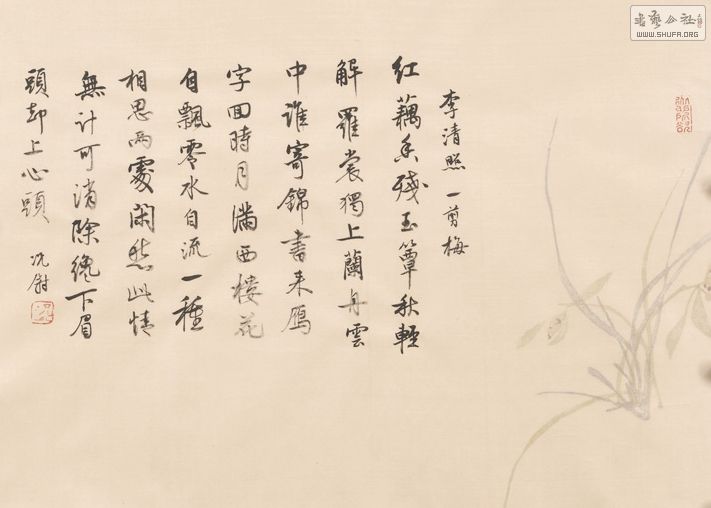 李清照 一剪梅
红藕香残玉簟秋轻
解羅裳獨上蘭舟雲
中誰寄錦書来雁
字回時月滿西樓花
自飄零水自流一種
相思兩處閑愁此情
無計可消除纔下眉
頭却上心頭
书艺公社
WWW.SHUFA.ORG